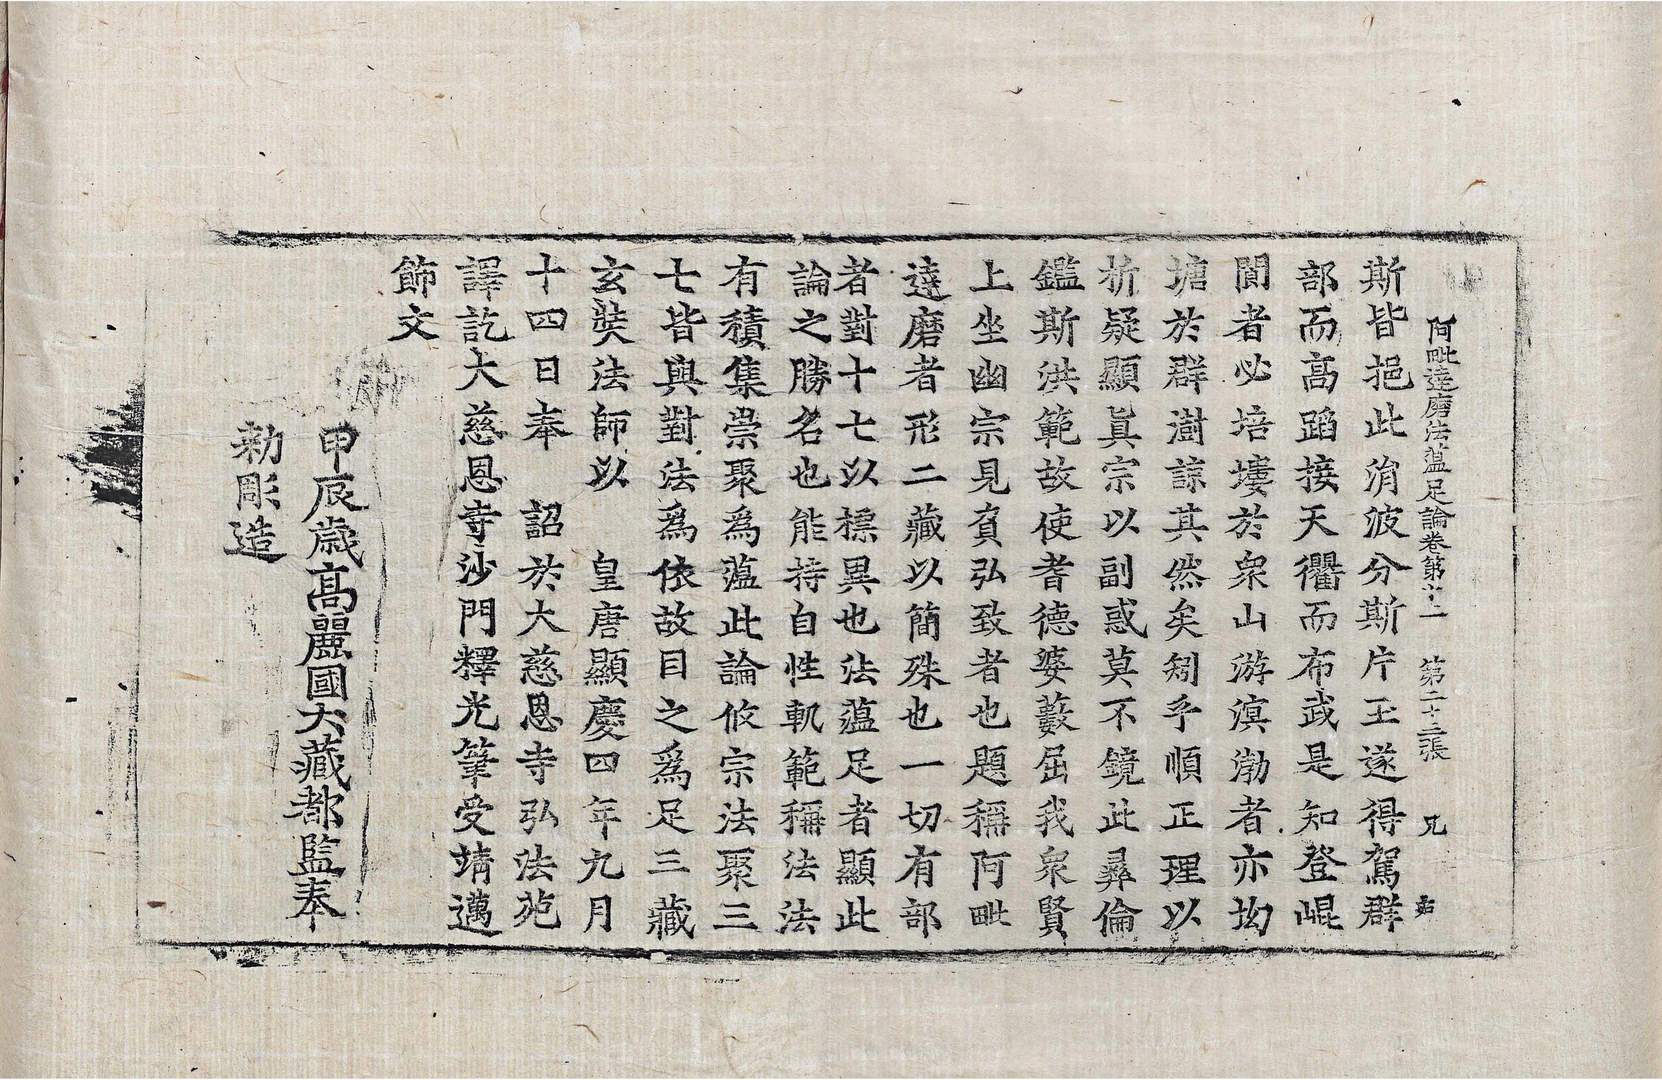 阿毗達磨法蘊足論卷第十二 第二十三張 兄
斯皆挹此涓波分斯片玉遂得駕群
部而高蹈接天衢而布武是知登崐
閬者必培塿於衆山游溟渤者亦坳
塘於群澍諒其然矣矧乎順正理以
析疑顯眞宗以副惑莫不鏡此彝倫
鑑斯洪範故使耆德婆藪屈我衆賢
上坐幽宗見賓弘致者也題稱阿毗
達磨者形二藏以簡殊也一切有部
者對十七以標異也法蘊足者顯此
論之勝名也能持自性軌範稱法法
有積集崇聚爲蘊此論攸宗法聚三
七皆與對法爲依故目之爲足三藏
玄奘法師以 皇唐顯慶四年九月
十四日奉 詔於大慈恩寺弘法苑
譯訖大慈恩寺沙門釋光筆受靖邁
飾文
甲辰歲高麗國大藏都監奉
勅彫造